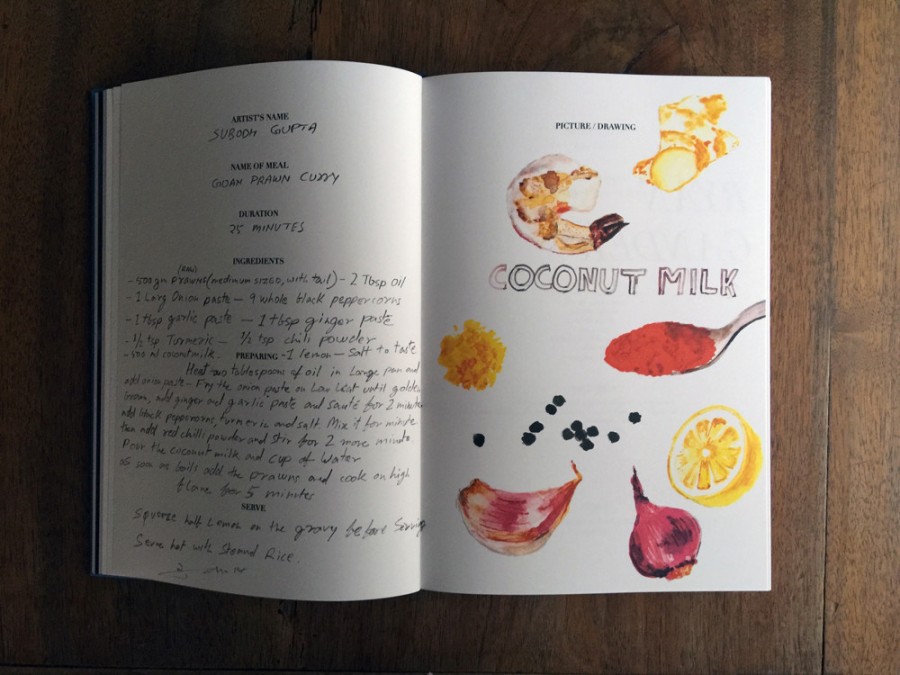 ARTIST'S NAME
SUBODH GUPTA
NAME OF MEAL
GOAN PRAWN CURRY
DURATION
25 MINUTES
INGREDIENTS
- 500 gm Prawns (medium sized, with tail) - 2 Tbsp oil
- 1 Larg Onion paste - 9 whole black peppercorns
- 1 tbsp garlic paste - 1 tbsp ginger paste
- 1/2 tsp Turmeric - 1/2 tsp chili powder
- 500 ml coconut milk. PREPARING - 1 lemon - Salt to taste
Heat two tablespoons of oil in Large pan and
add onion paste - Fry the onion paste on Low heat until golden
brown, add ginger and garlic paste and sauté for 2 minutes
add black peppercorns, turmeric and salt. Mix it for minute
then add red chilli powder and stir for 2 more minute.
Pour the coconut milk and cup of water
as soon as boils add the prawns and cook on high
flame for 5 minutes
SERVE
Squeeze half Lemon on the gravy before Serving
Serve hot with Steamed Rice.
PICTURE / DRAWING
COCONUT MILK